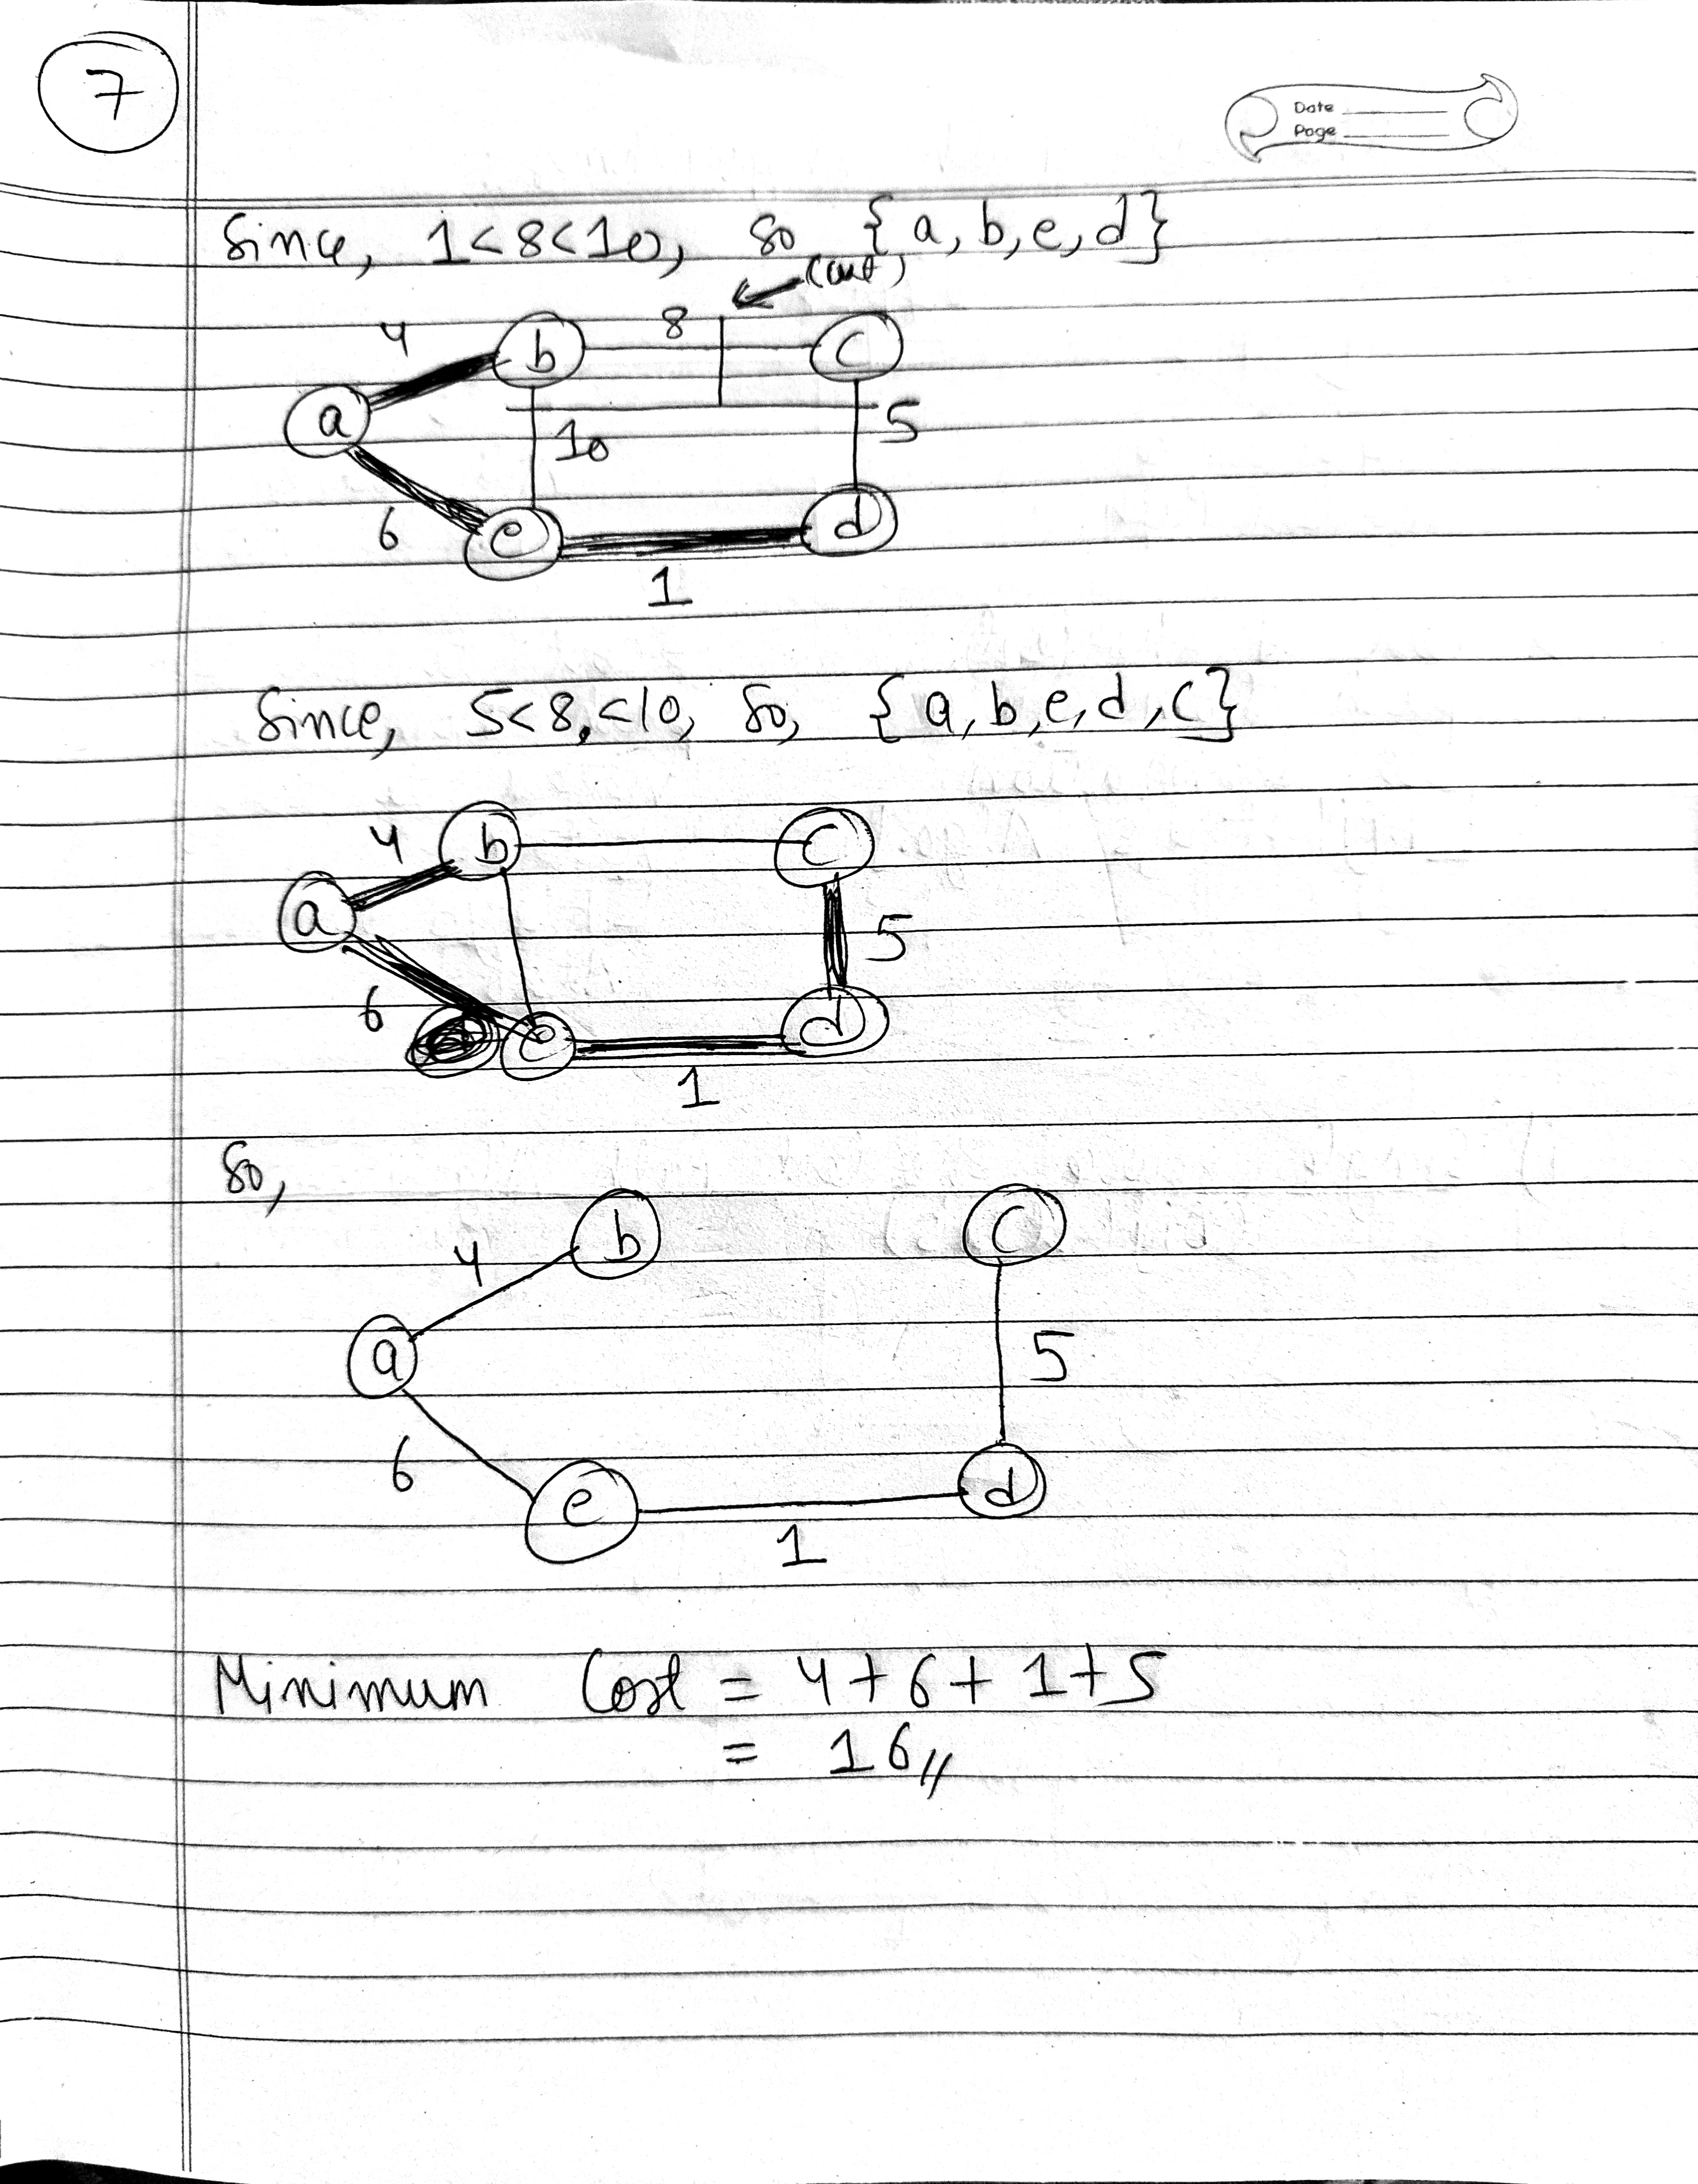 7
Date
Page
Since, 1<8<10, so {a, b, e, d}
(cut)
4 b 8 c
a 10 5
6 e d
1
Since, 5<8,<10, so, {a, b, e, d, c}
4 b c
a 5
6 e d
1
So,
4 b c
a 5
6 e d
1
Minimum Cost = 4+6+1+5
= 16//